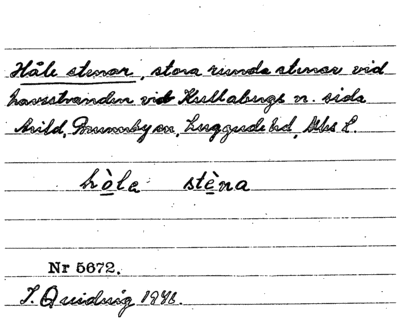 Håle stenar, stora runda stenar vid
havsstranden vid Kullabergs n. sida
Arild, Brunnby sn, Luggude hd, Mhs l.
hòla stèna
Nr 5672.
I. Quidwig 1946.